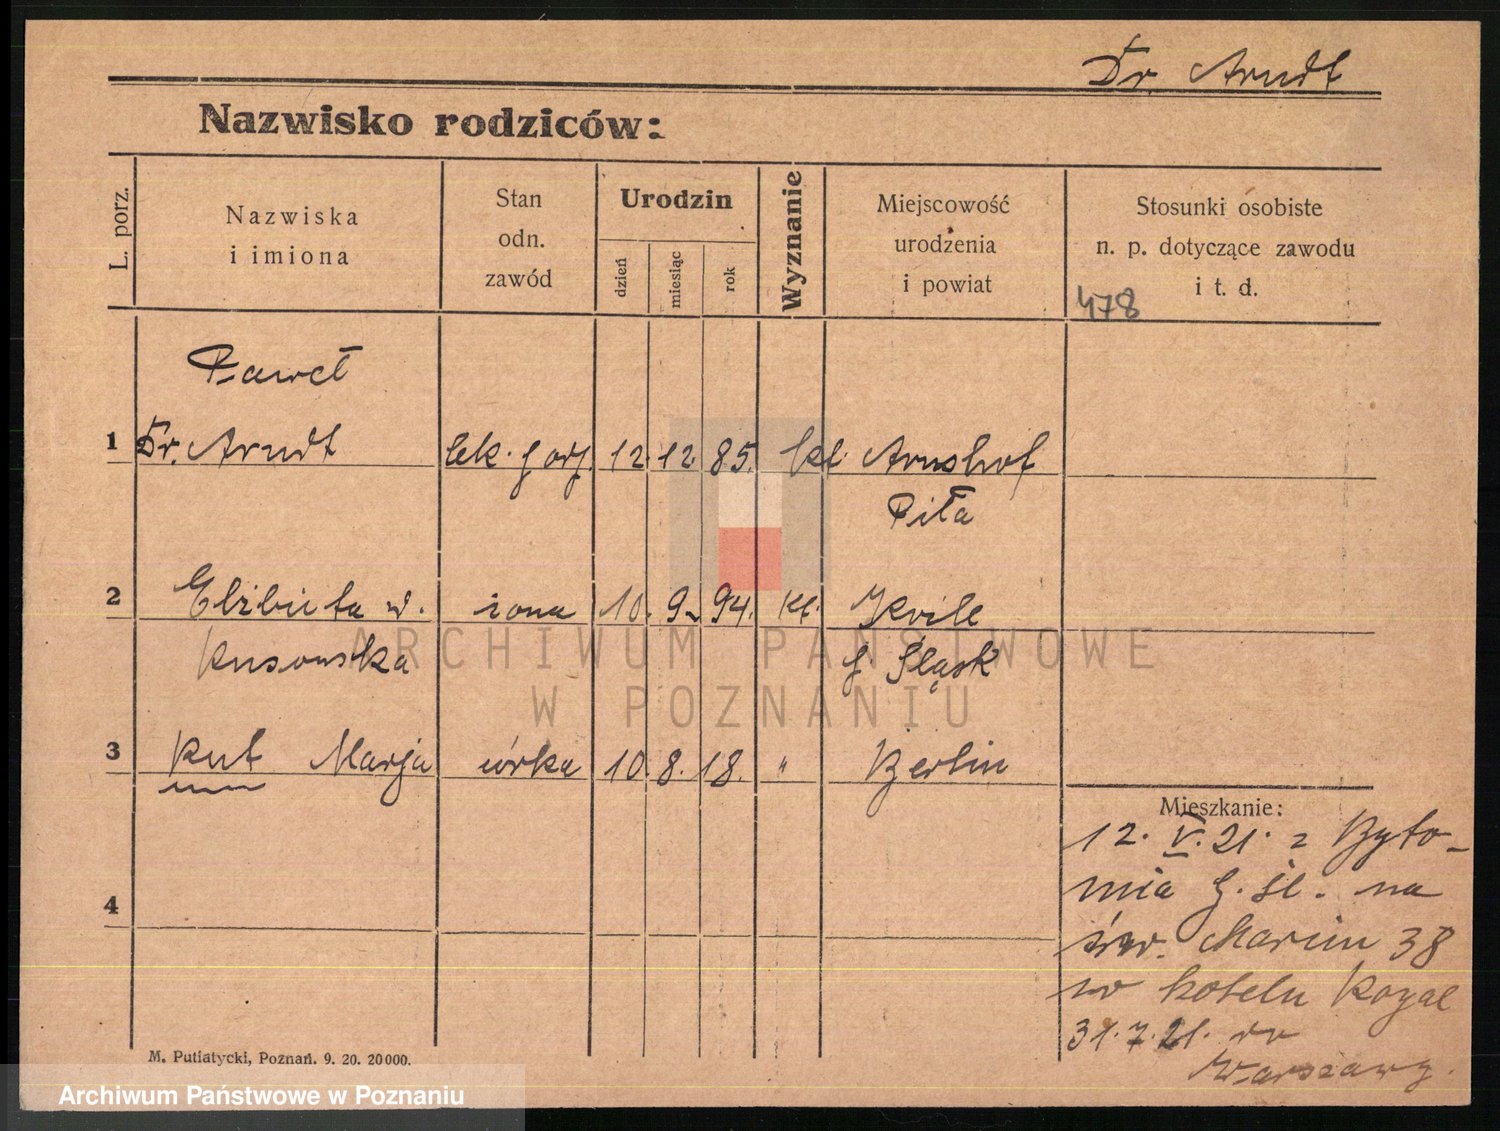 Dr. Arndt
Nazwisko rodziców:
L. porz.
Nazwiska
i imiona
Stan
odn.
zawód
Urodzin
dzień
miesiąc
rok
Wyznanie
Miejscowość
urodzenia
i powiat
Stosunki osobiste
n. p. dotyczące zawodu
i t. d.
478
Paweł
1 Dr. Arndt lek. 12. 12. 85. kt. Arnshof
Piła
2 Elżbieta w. żona 10. 9. 94. kt.
Kusowska G Śląsk
3 Rut Marja córka 10. 8. 18. " Berlin
Mieszkanie:
12. V. 21. z Byto-
mia G. Śl. na
św. Marcin 38
w hotelu Royal
4
31. 7. 21. do
Warszawy.
M. Putiatycki, Poznań. 9. 20. 20000.
ARCHIWUM PAŃSTWOWE
W POZNANIU
Archiwum Państwowe w Poznaniu